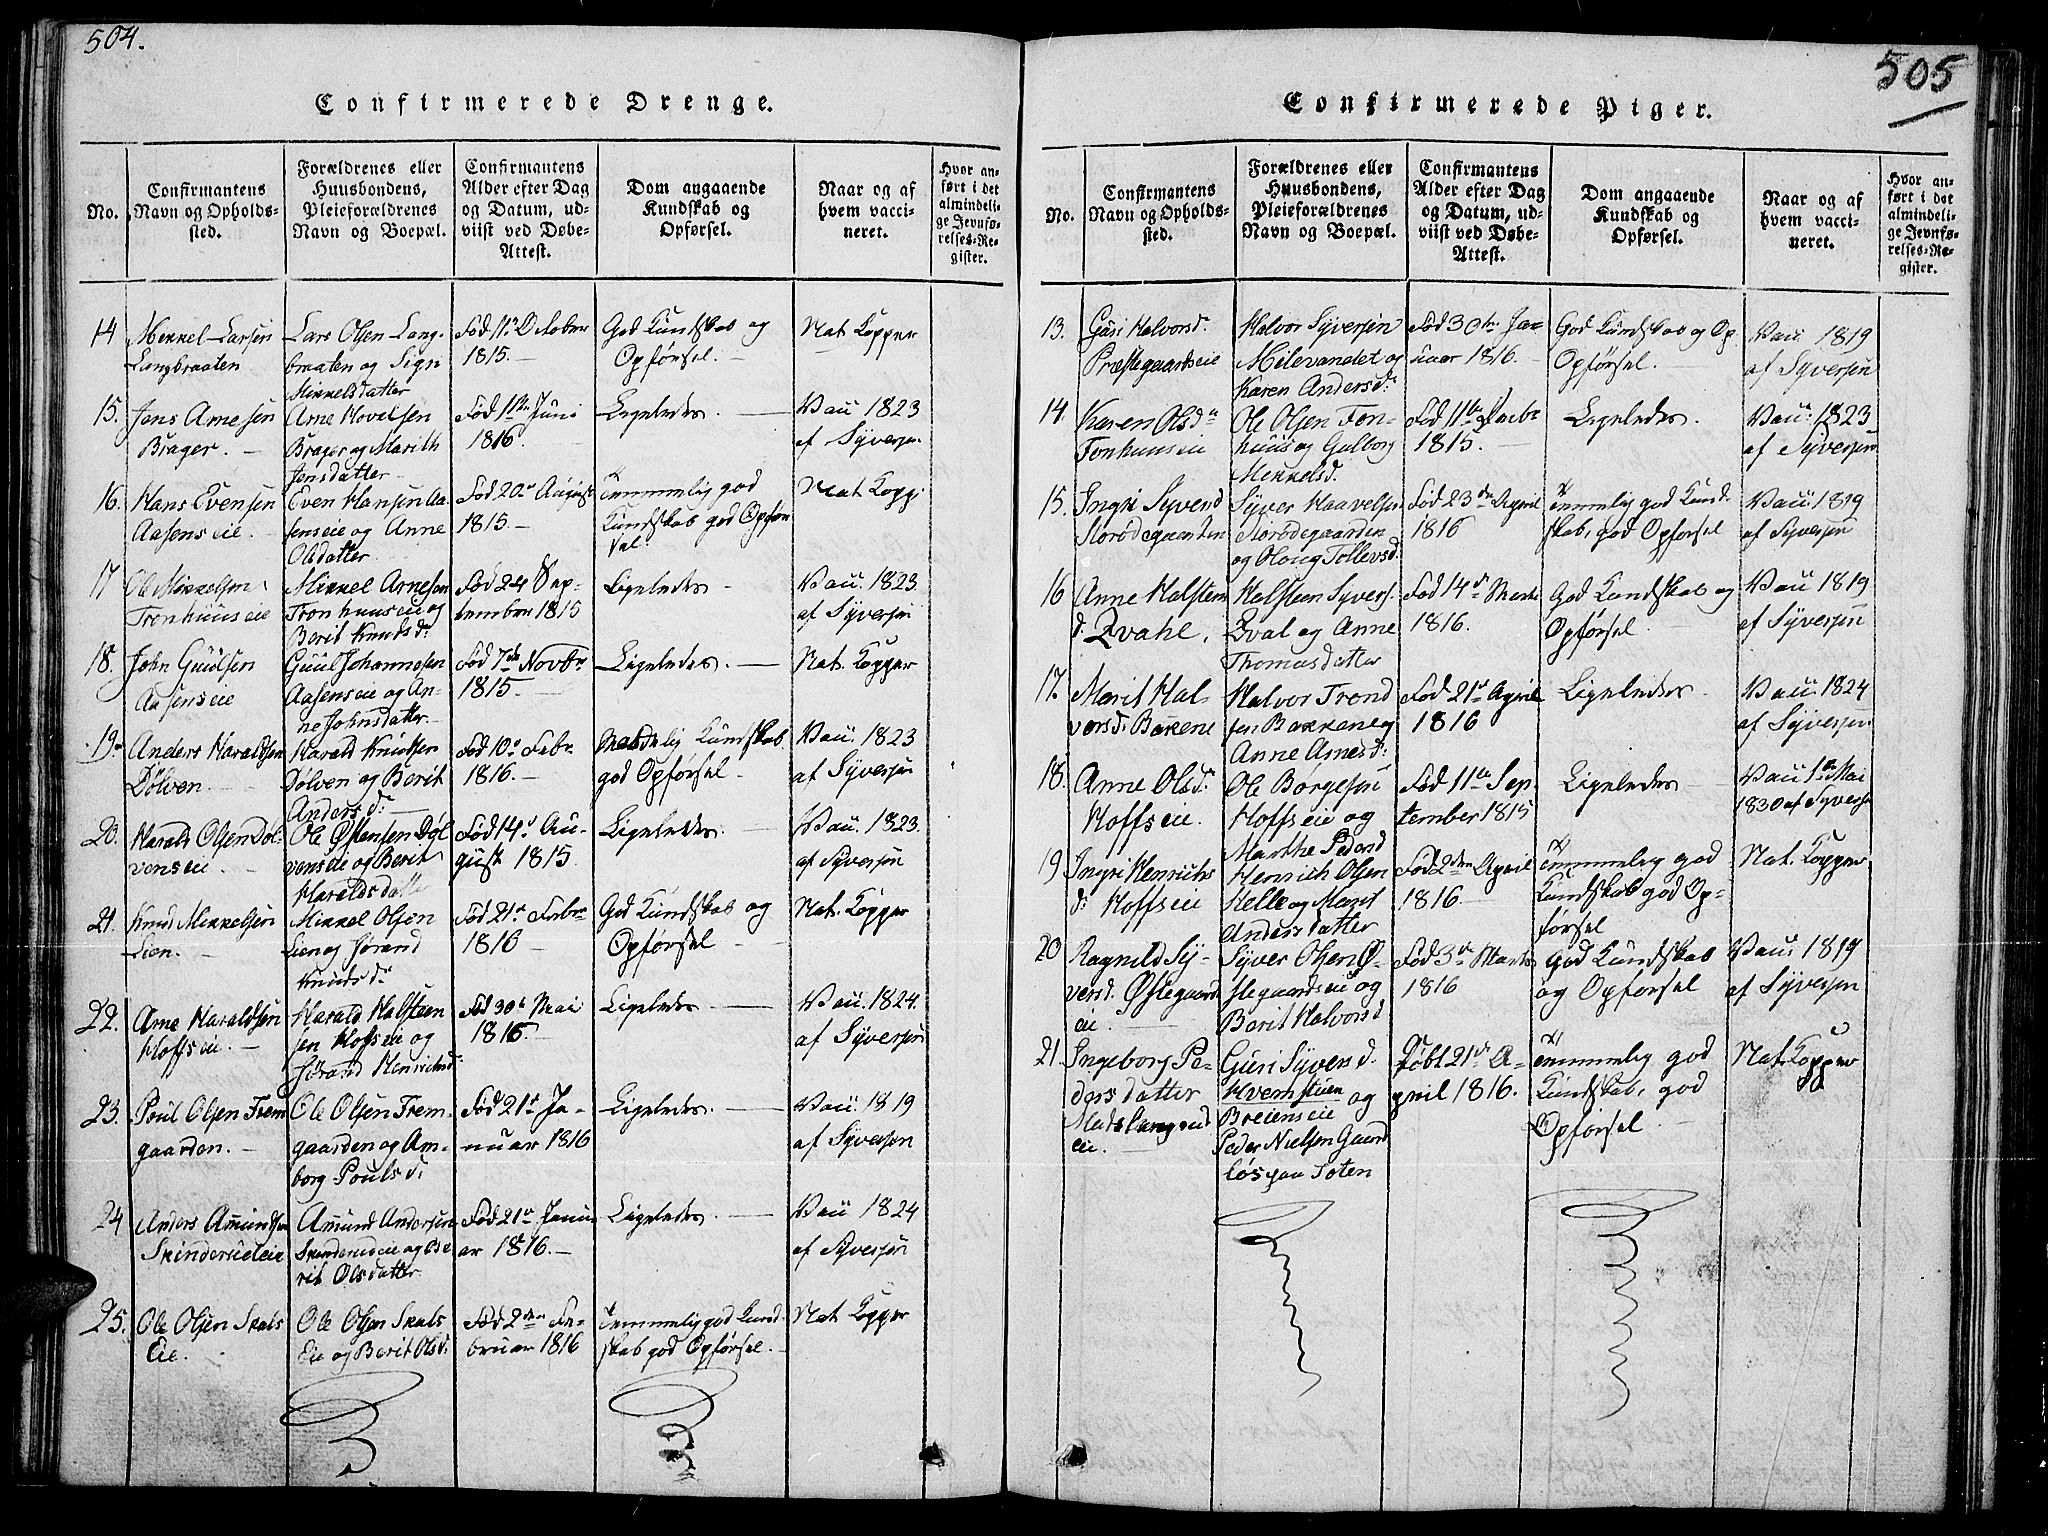 504.
Confirmerede Drenge.
No.
Confirmantens
Navn og Opholds-
sted.
Forældrenes eller
Huusbondens,
Pleieforældrenes
Navn og Boepæl.
Confirmantens
Alder efter Dag
og Datum, ud-
viist ved Døbe-
Attest.
Dom angaaende
Kundskab og
Opførsel.
Naar og af
hvem vacci-
neret.
Hvor an-
ført i det
almindeli-
ge Jevnfø-
relses-Re-
gister.
14
Mekkel Larsen
Langbraaten
Lars Olsen Lang-
braaten og Sign
Mikkelsdatter
Fød 11te October
1815.
God Kundskab og
Opførsel.
Nat. Kopper
15.
Jens Arnesen
Brager.
Arne Hovelsen
Brager og Marith
Jensdatter
Fød 11te Juni
1816.
Ligeledes.
Vac 1823
af Syversen
16.
Hans Evensen
Aasens eie.
Even Hansen Aa-
senseie og Anne
Olsdatter
Fød 20de August
1815.
Temmelig god
Kundskab god Opfør
sel.
Nat Kopp.
17
Ole Mikkelsen
Tronhuus eie
Mikkel Arnesen
Tronhuus eie og
Berit Knudsdr
Fød 24 Sep-
tember 1815
Ligeledes
Vac. 1823.
af Syversen
18.
John Guulsen
Aasens eie
Guul Johannesen
Aasens eie og An-
ne Johnsdatter
Fød 7de Novbr
1815.
Ligeledes.
Nat. Kopper
19.
Anders Haraldsen
Dølven.
Harald Knudsen
Dølven og Berit
Anders d:
Fød 10de Febr
1816.
Maadelig Kundskab
god Opførsel
Vac. 1823
af Syversen
20.
Harald Olsen Døl-
vens eie.
Ole Østensen Døl
vens eie og Berit
Haralds datter
Fød 14de Au-
gust 1815.
Ligeledes
Vac. 1823.
af Syversen
21.
Knud Mikkelsen
Lien.
Mikkel Olsen
Lien og Jørand
Knuds dr
Fød 21de Febr
1816
God Kundskab og
Opførsel
Nat. Kopper
22.
Arne Haraldsen
Hoffs eie.
Harald Halsteen
sen Hoffs eie og
Jørand Henrichsd:
Fød 30te Mai
1816.
Ligeledes.
Vac. 1824.
af Syversen
23.
Poul Olsen Trem
gaarden.
Ole Olsen Trem-
gaarden og Am-
borg Pouls d:
Fød 21de Ja-
nuar 1816
Ligeledes.
Vac. 1819
af Syversen
24
Anders Amundsen
Skinderudeie
Amund Andersen
Skinderudeie og Be
rit Olsdatter
Fød 21de Janu
ar 1816.
Ligeledes.
Vac 1824
af Syversen
25.
Ole Olsen Skals
Eie.
Ole Olsen Skals
Eie og Berit Olsd:
Fød 2den Fe-
bruar 1816
Temmelig god Kund-
skab god Opførsel.
Nat Kopper
505
Confirmerede Piger.
No.
Confirmantens
Navn og Opholds-
sted.
Forældrenes eller
Huusbondens,
Pleieforældrenes
Navn og Boepæl.
Confirmantens
Alder efter Dag
og Datum, ud-
viist ved Døbe-
Attest.
Dom angaaende
Kundskab og
Opførsel.
Naar og af
hvem vacci-
neret.
Hvor an-
ført i det
almindeli-
ge Jevnfø-
relses-Re-
gister.
13.
Guri Halvorsd.
Præstegaardseie
Halvor Syversen
Milevandet og
Karen Andersd:
Fød 30te Ja-
nuar 1816.
God Kundskab og Op.
Opførsel.
Vac. 1819
af Syversen
14.
Karen Olsdr
Fonhuus eie
Ole Olsen Fon-
huus og Gulbor
Mekkelsd.
Fød 11te
1815.
Ligeledes.
Vac. 1823
af Syversen
15.
Ingri Syversd
Norødegaarden
Syver Haavelsen
Norødegaarden
og Oloug Tollevsd.
Fød 23de April
1816
Temmelig god Kund-
skab, god Opførsel
Vac. 1819
af Syversen
16
Anne Halsteen
d. Qvahl.
Halsteen Syvers.
Qval og Anne
Thomasdatter
Fød 14de Marti
1816.
God Kundskab og
Opførsel
Vac 1819
af Syversen
17.
Marit Hal
vorsd: Bakene
Halvor Trond
sen Bakkene og
Anne Arnesd:
Fød 21de April
1816
Ligeledes
Vac. 1824
af Syversen
18.
Anne Olsd:
Hoffs eie.
Ole Børgesen
Hoffs eie og
Marthe Pedersd
Fød 11te Sep
tember 1815
Ligeledes
Vac 1te Mai
1830 af Syversen
19
Ingri Henrichs
d: Hoffs eie
Henrich Olsen
Helle og Marit
Andersdatter
Fød 2den April
1816
Temmelig god
Kundskab god Op-
førsel
Nat. Kopper
20
Ragnild Sy-
versd. Østegaards
eie
Syver Olsen Ø-
stegaards eie og
Berit Halvorsd
Fød 3de Marts
1816
God Kundskab
og Opførsel
Vac. 1819
af Syversen
21.
Ingeborg Pe-
ders datter
eie.
Guri Syvers d.
Kvemstuen og
Breiens eie
Peder Nielsen Gaard
løs paa Toten
Døbt 21de A-
pril 1816.
Temmelig god
Kundskab, god
Opførsel
Nat. Kopper